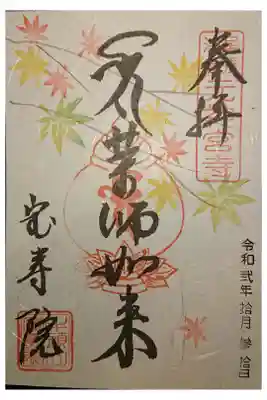 奉拝
薬師如来
宝寿院
令和弐年 拾月 参拾日